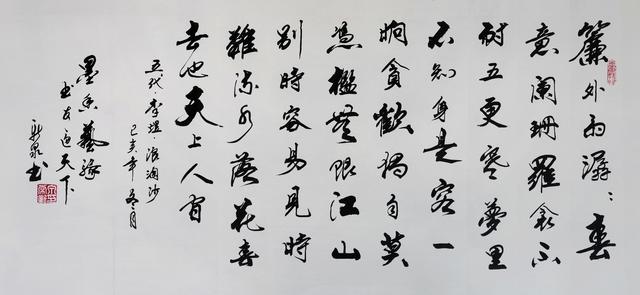 簾外雨潺潺春
意闌珊羅衾不
耐五更寒夢里
不知身是客一
晌貪歡獨自莫
憑欄無限江山
别時容易見時
難流水落花春
去也天上人间
五代李煜浪淘沙
己亥年冬月
墨香藝缘
书友遍天下
泉书